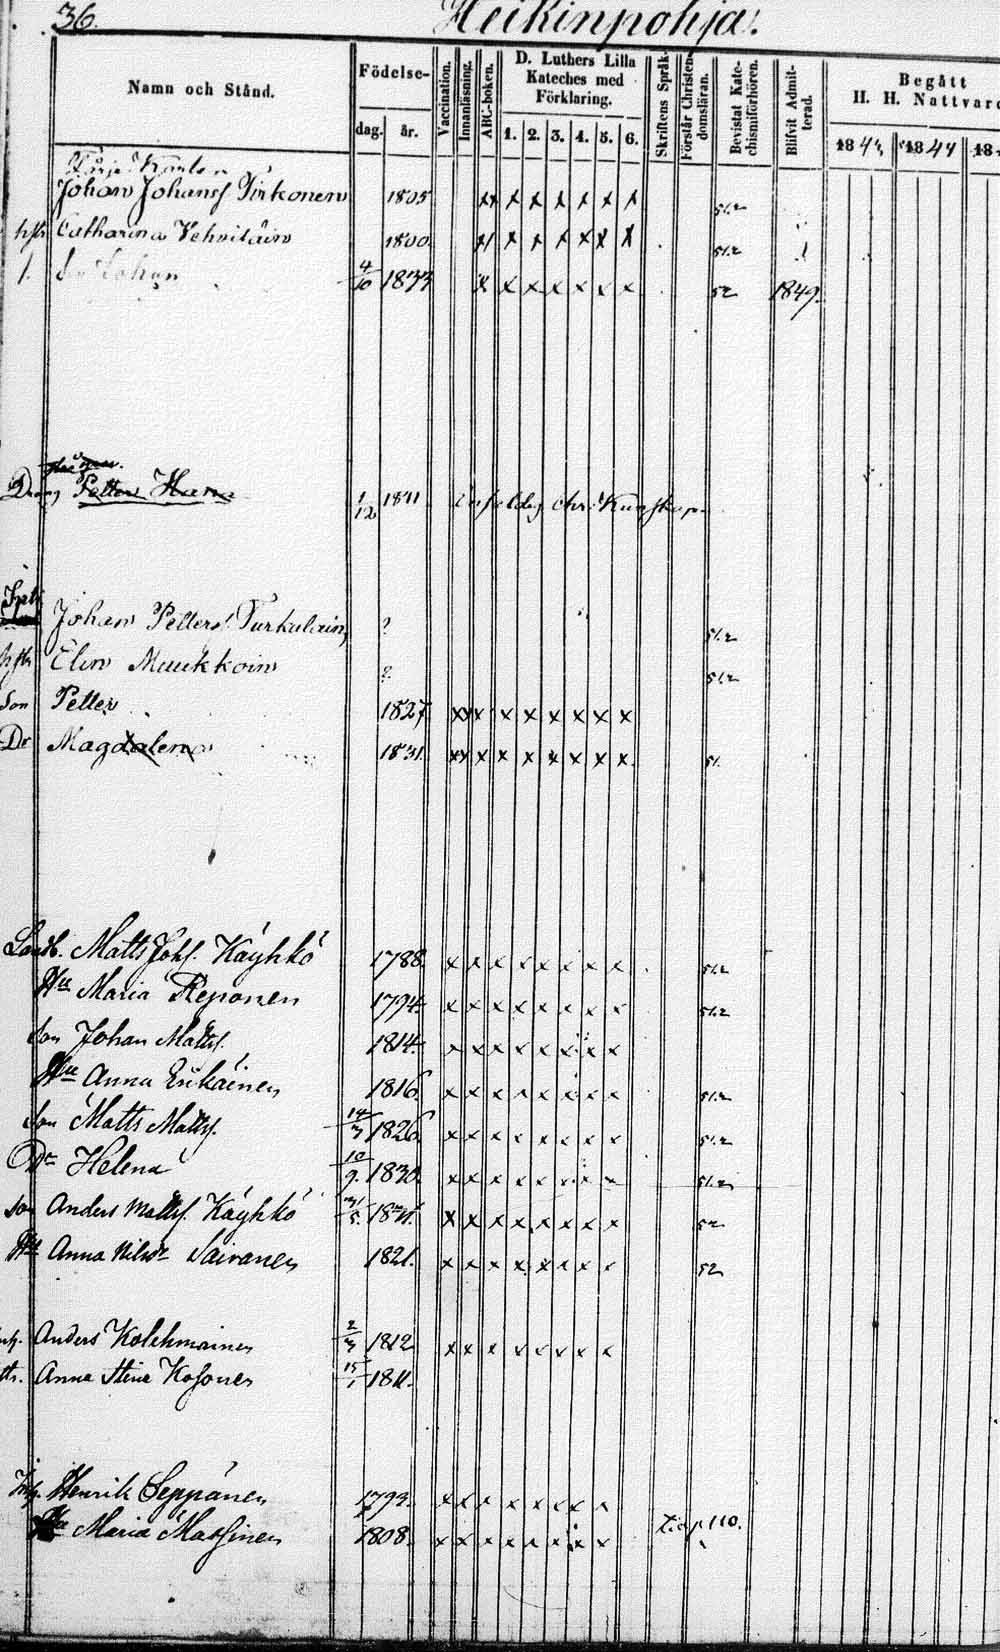 36. Heikinpohja.
Namn och Stånd. Födelse- dag. år. Vaccination. Innanläsning. ABC-boken. D. Luthers Lilla Kateches med Förklaring. 1. 2. 3. 4. 5. 6. Skriftens Språk. Förstår Christen-domsläran. Bevistat Kate-chismiförhören. Blifvit Admit-terad. Begått H. H. Nattvard
1843 1844 18
Johan Johans Pirkonen 1805 xx x x x x x x 51.2
hstr Catharina Vehviläin 1800 x/ x x x x x x 51.2
Son Johan 4/10 1833 x x x x x x x 52 1849.
Dräng Petter 1/12 1811 chr. Kunskap.
Johan Petters. Turkulain ? 51.2
hstr Elin Muukkoin ? 51.2
Son Petter 1827 xx x x x x x x x
Dr Magdalena 1831. xx x x x x x x x 51.
Landb. Matts Johs. Käyhkö 1788. x x x x x x x x 51.2
Hu Maria Reponen 1794. x x x x x x x x 51.2
Son Johan Matts. 1814. x x x x x x x x
Hu Anna 1816. x x x x x x x x 51.2
Son Matts Matts. 14/3 1826. x x x x x x x x 51.2
Dr Helena 10/9. 1830. x x x x x x x x 51.2
Son Anders Matts. Käyhkö 31/5. x x x x x x x x 52
Hu Anna Nilsdr Saivanen 1821. x x x x x x x x 52
Anders Kolehmainen 2/3 1812 x x x x x x x x
Anna Stina Kosonen 15/1 1811.
Inh. Henrik Seppänen 1793. x x x x x x x x
Hu Maria Massinen 1808. x x x x x x x x p 110.